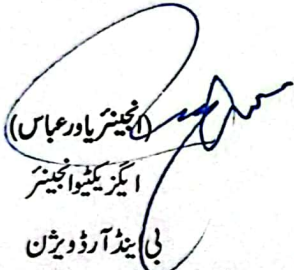 (انجینئر یاور عباس)
ایگزیکٹیو انجینئر
بی اینڈ آر ڈویژن